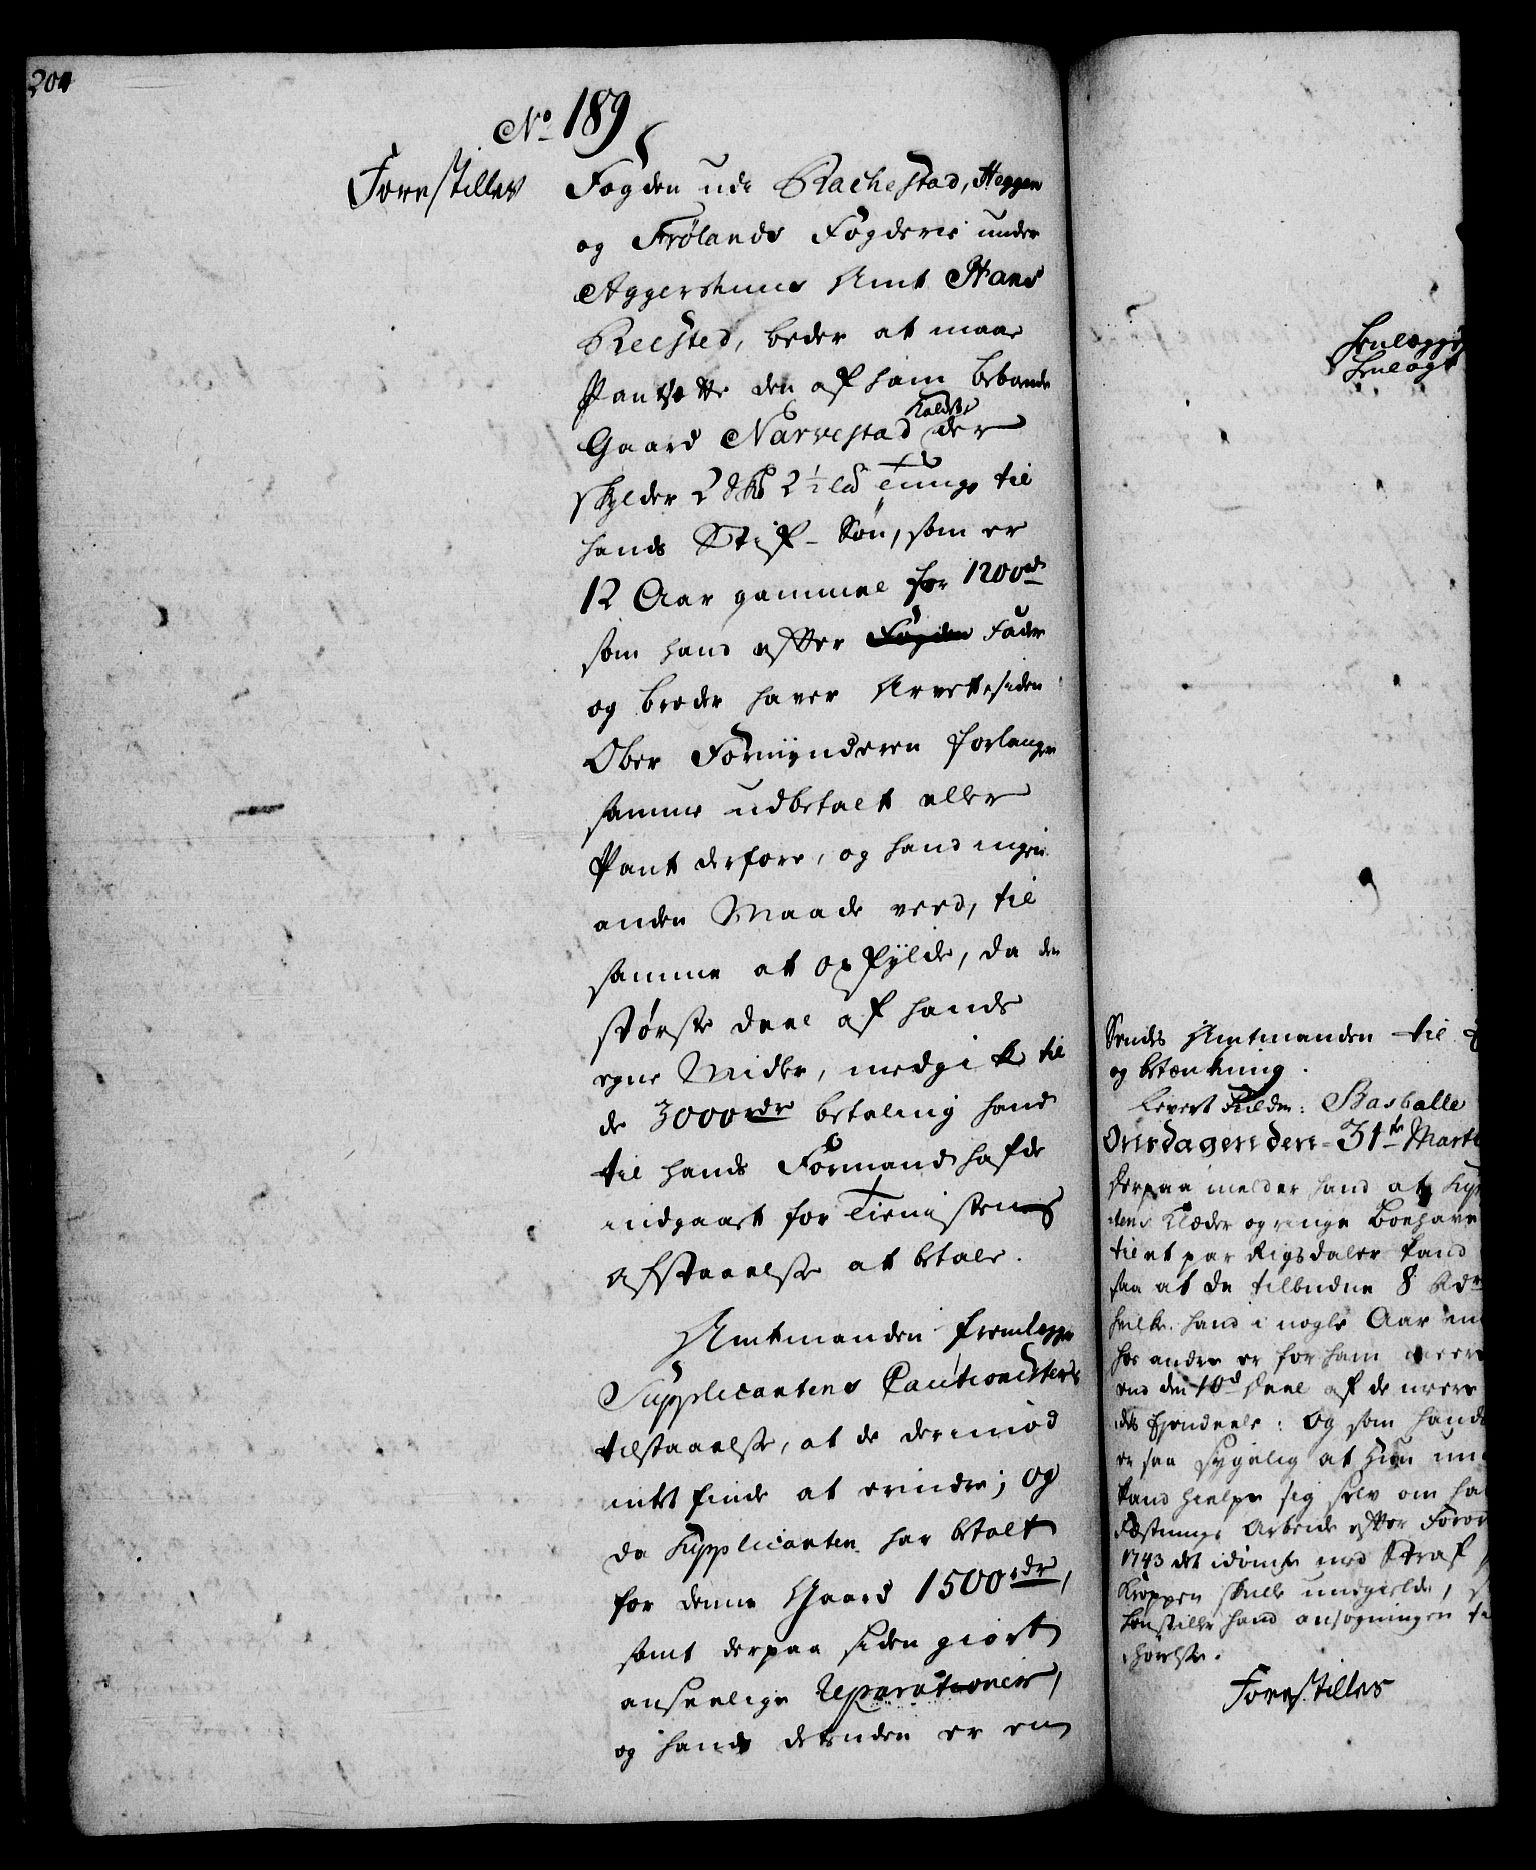 204
No 189
Forestilles
Fogden udi Rachestad, Heggen
og Frølands Fogderie under
Aggershuus Amt Hans
Reested, beder at maae
Pantsætte den af ham beboende
Gaard Narvestad kaldet der
skylder 2 2½ Tunge til
hands Stif-Søn, som er
12 Aar gammel for 1200rd
som hand efter Fader
og broder haver Arvet, siden
Ober Formynderen forlanger
samme udbetalt eller
Pant derfore, og hand ingen
anden Maade veed, til
samme at opfylde, da den
største deel af hands
egne Midler, medgik til
de 3000rdr betaling hand
til hands Formand hafde
indgaaet for Tienistens
afstaaelse at betale.
Amtmanden fremlegger
Supplicantens Cautionisters
tilstaaelse, at de derimod
intet finde at erindre; og
da Supplicanten har betalt
for denne Gaard 1500rdr,
samt derpaa siden giort
anseelige Reparationer,
og hands desuden er en
Henlegges
Henlagt
Sendes Amtmanden til
og betænkning.
Levert Fuldm: Basballe
Onsdagen den 31te Marti
Derpaa melder hand at
Klæder og ringe Boehave
til et par Rigsdaler kand
saa at de tilbudne 8 Rdr
hvilke hand i nogle Aar
hos andre er for ham meere
end den 10de deel af de
Ejendeele: og som hands
er saa sygelig at hun
kand hielpe sig selv om
Fæstnings Arbeide efter Foror
1743 det idømte med Straf
Kroppen skulle undgielde,
henstiller hand ansøgningen
Forestilles